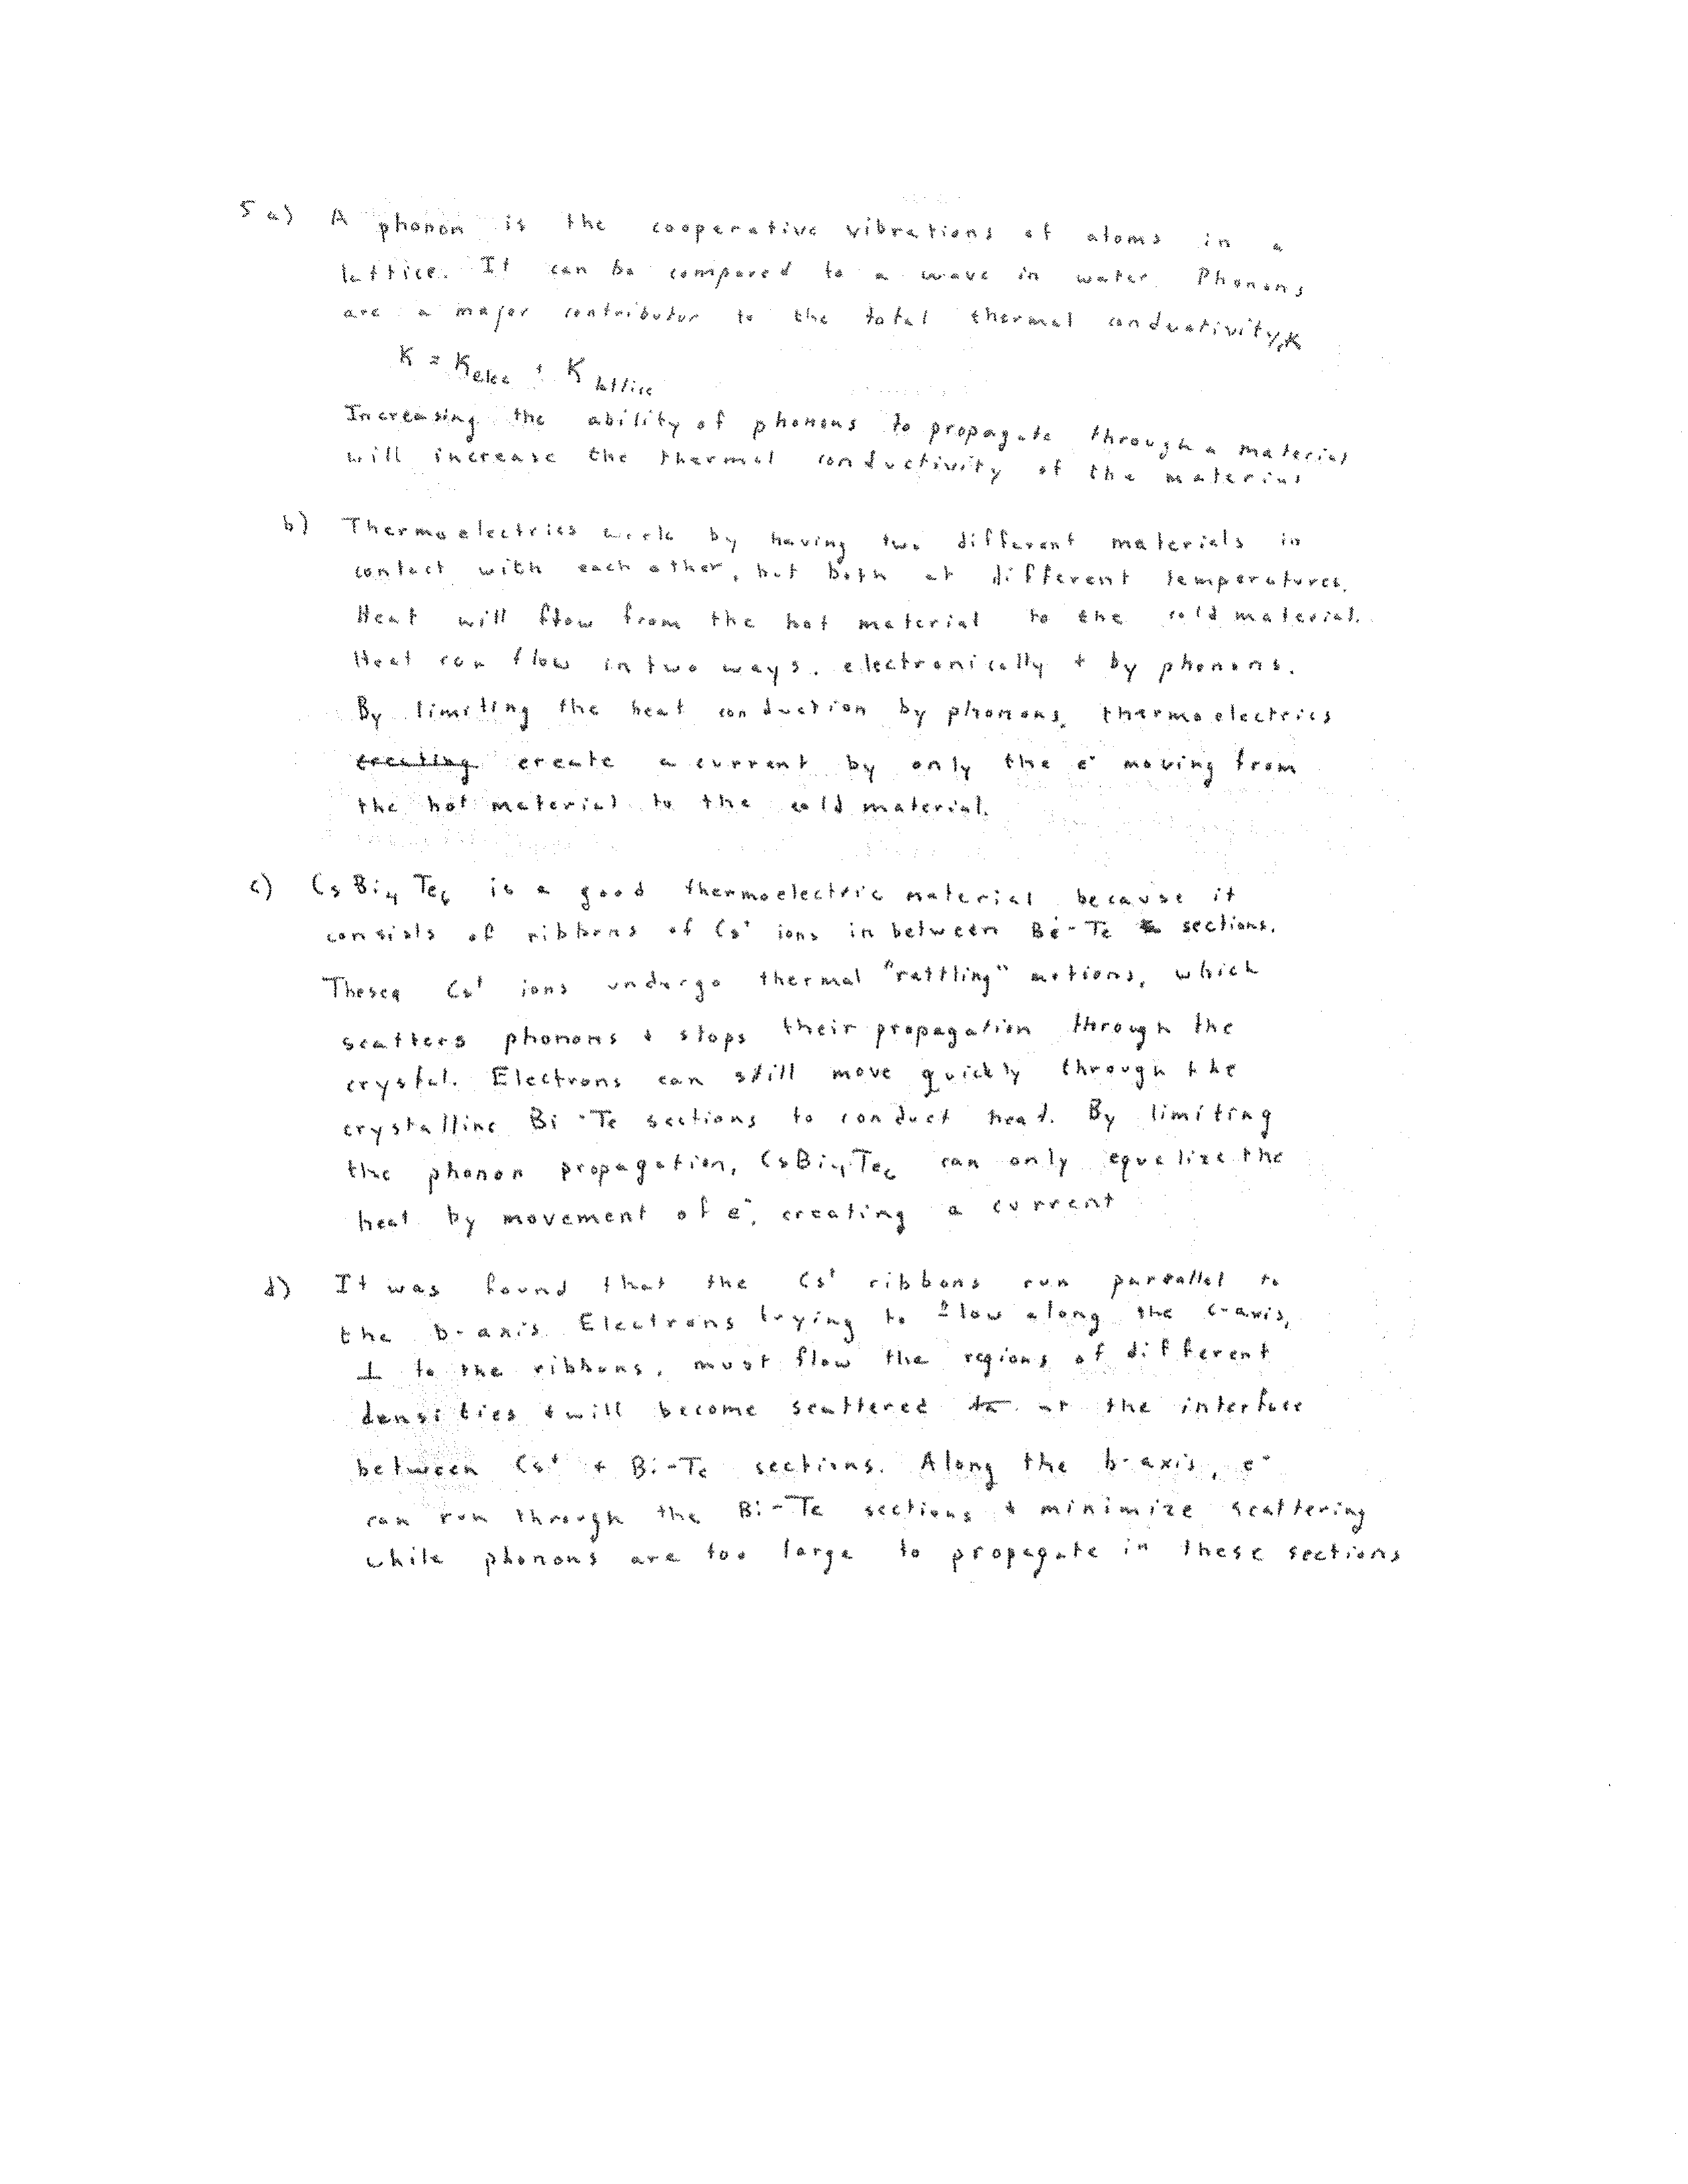 5 a) A phonon is the cooperative vibrations of atoms in a
lattice. It can be compared to a wave in water. Phonons
are a major contributor to the total thermal conductivity, K
K = K elec + K lattice
Increasing the ability of phonons to propagate through a material
will increase the thermal conductivity of the material
b) Thermoelectrics work by having two different materials in
contact with each other, but both at different temperatures.
Heat will flow from the hot material to the cold material.
Heat can flow in two ways. electronically + by phonons.
By limiting the heat conduction by phonons, thermoelectrics
creating create a current by only the e⁻ moving from
the hot material to the cold material.
c) CsBi₄Te₆ is a good thermoelectric material because it
consists of ribbons of Cs⁺ ions in between Bi-Te sections.
These Cs⁺ ions undergo thermal "rattling" motions, which
scatters phonons + stops their propagation through the
crystal. Electrons can still move quickly through the
crystalline Bi-Te sections to conduct heat. By limiting
the phonon propagation, CsBi₄Te₆ can only equalize the
heat by movement of e⁻, creating a current
d) It was found that the Cs⁺ ribbons run parallel to
the b-axis. Electrons trying to flow along the c-axis,
⊥ to the ribbons, must flow the regions of different
densities + will become scattered to at the interface
between Cs⁺ + Bi-Te sections. Along the b-axis, e⁻
can run through the Bi-Te sections + minimize scattering
while phonons are too large to propagate in these sections